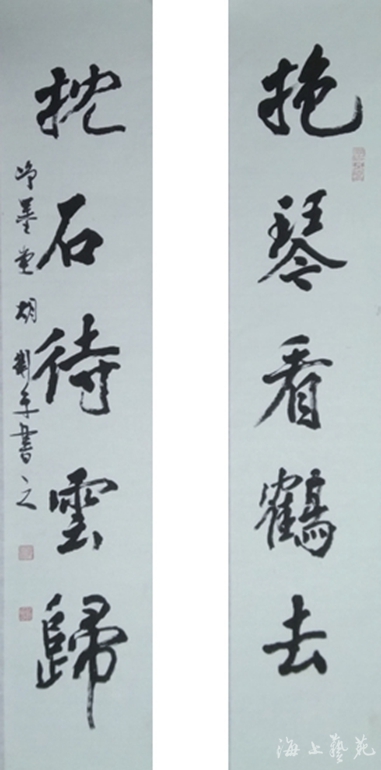 抱琴看鶴去
枕石待雲歸
墨堂胡荆书之
海上藝苑